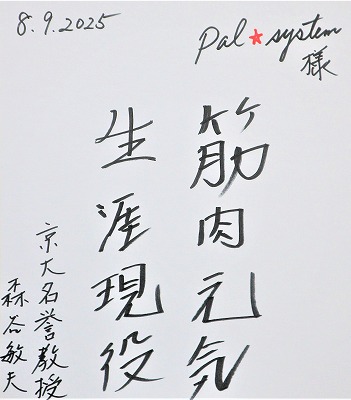 8.9.2025
Pal★system
様
筋肉元気
生涯現役
京大名誉教授
森谷敏夫